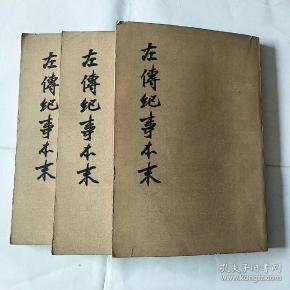 左傳紀事本末
左傳紀事本末
左傳紀事本末
孔夫子旧书网